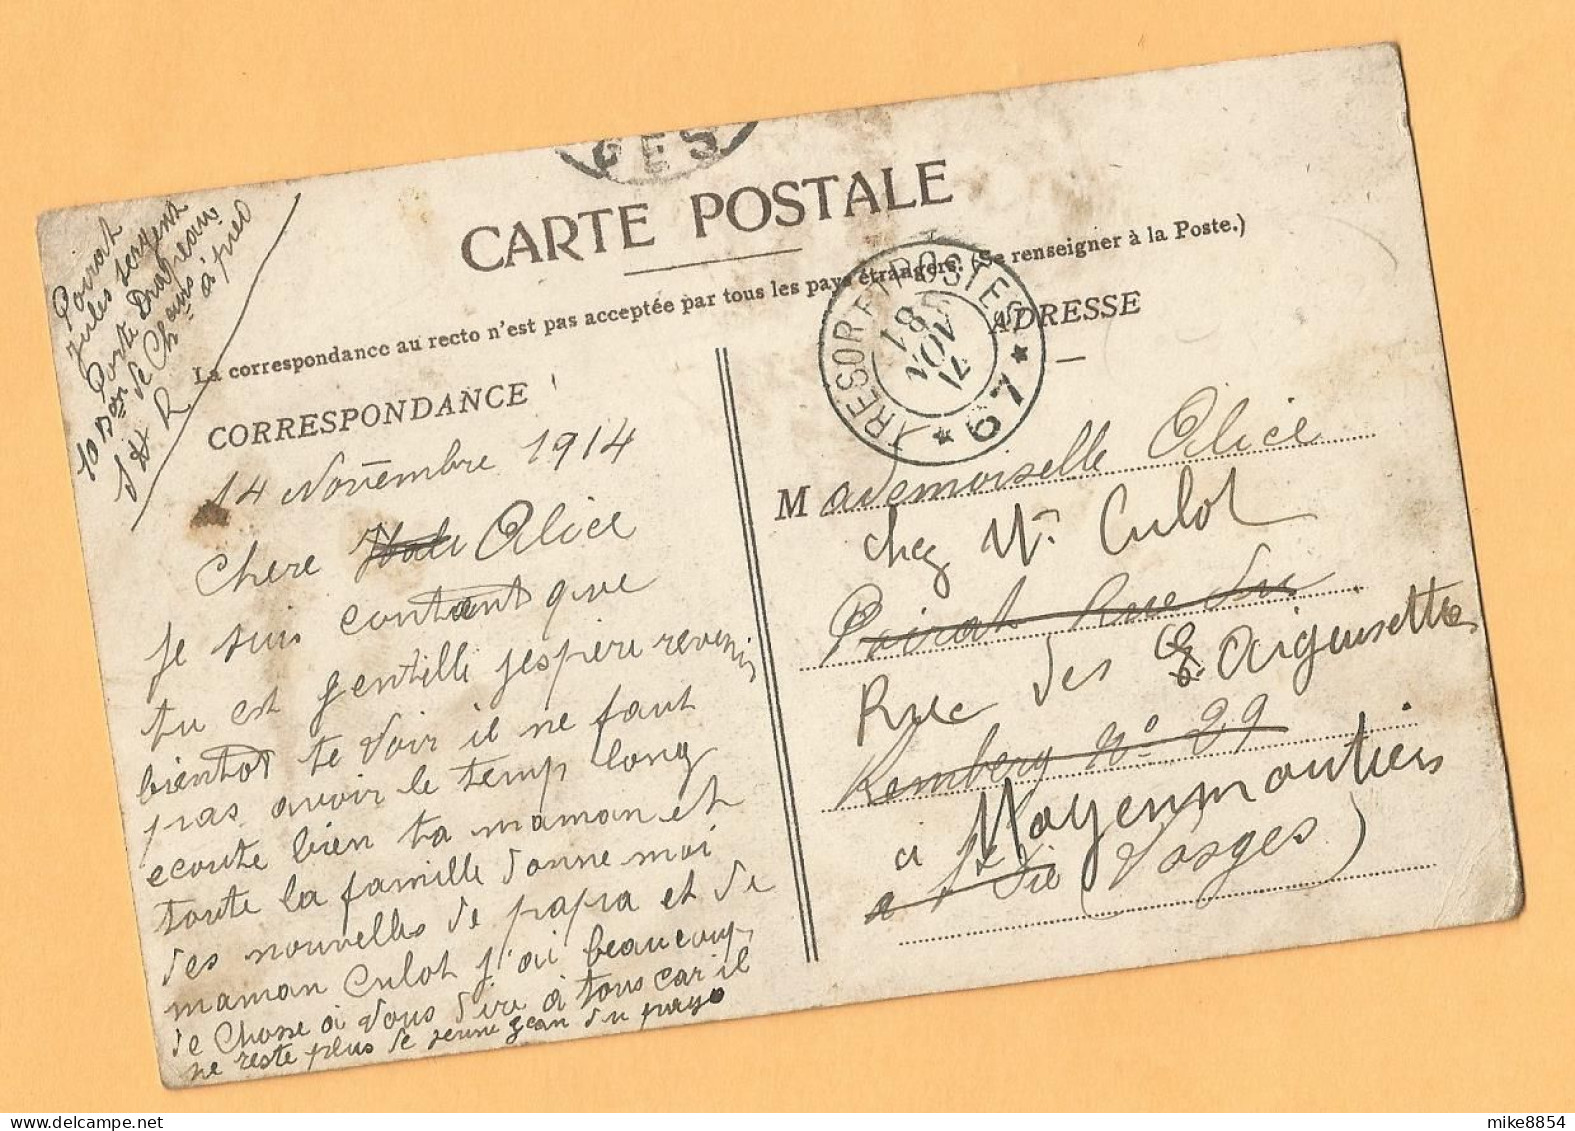 GES
CARTE POSTALE
La correspondance au recto n'est pas acceptée par tous les pays étrangers. (Se renseigner à la Poste.)
Poirat
jules sergent
Porte Drapeau
10 Bon de Chaurs
à pied
CORRESPONDANCE
14 Novembre 1914
Chere Alice
je suis contant que
tu est gentille j'espère revenir
bientot te voir il ne faut
pas avoir le temp long
ecoute bien ta maman et
toute la famille donne moi
des nouvelles de papa et de
maman Culot j'ai beaucoup
de Chosse a vous dire a tous car il
ne reste plus de jeune gean du pays
TRESOR ET POSTES
18
NOV
14
* 67 *
ADRESSE
Mademoiselle Alice
chez Mr Culot
Poirat Rue du
Rue des Aiguisettes
Kemberg No 29
a Moyenmoutiers
a St Dié (Vosges)
mike8854